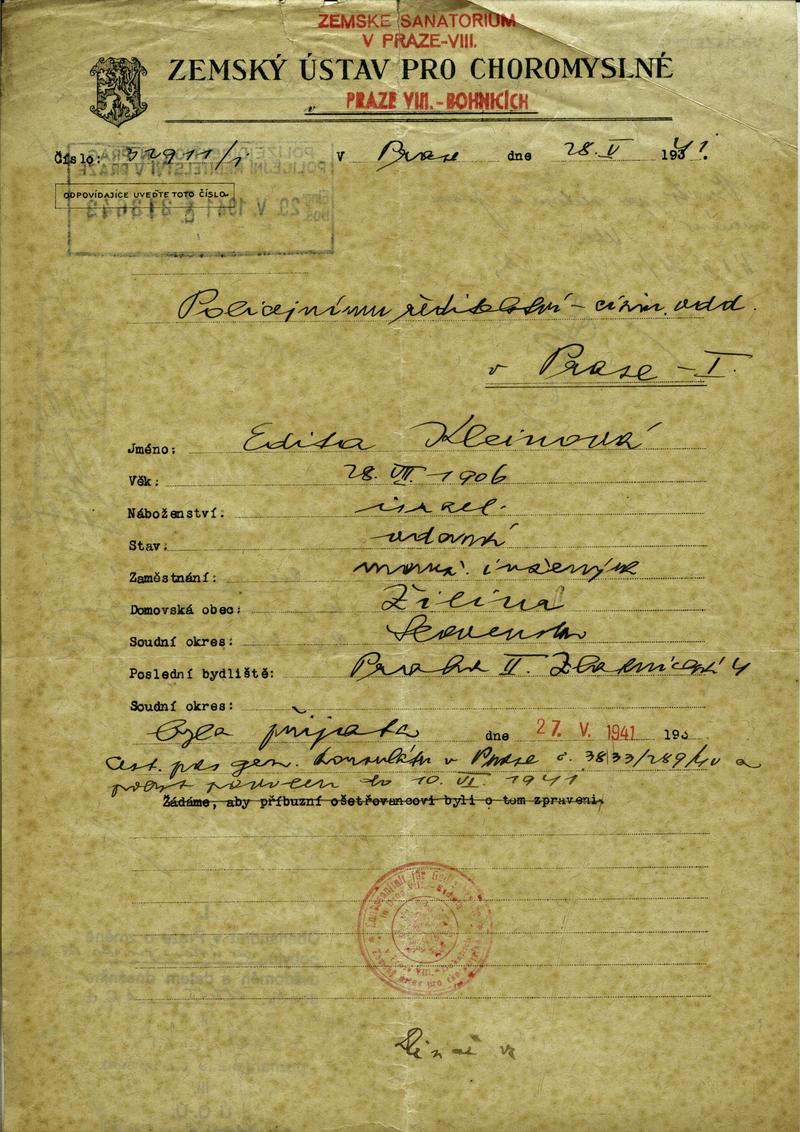 ZEMSKÉ SANATORIUM
V PRAZE-VIII.
ZEMSKÝ ÚSTAV PRO CHOROMYSLNÉ
v PRAZE VIII.-BOHNICÍCH
Číslo: 32911/1 V Praze dne 28. V 1941.
ODPOVÍDAJÍCE UVEĎTE TOTO ČÍSLO.
POLICEJNÍ ŘEDITELSTVÍ V PRAZE
29. V. 1941
Policejnímu ředitelství - cizin. odd.
v Praze - I.
Jméno: Edita Kleinová
Věk: 28. VII. 1906
Náboženství: israel.
Stav: vdaná
Zaměstnání: manž. inženýra
Domovská obec: Žilina
Soudní okres: Slovensko
Poslední bydliště: Praha II. 4
Soudní okres:
byla přijata dne 27. V. 1941 193
Cest. pas gen. konsulátu v Praze č. 3833/289/40 a
pobyt povolen do 10. VI. 1941
Žádáme, aby příbuzní ošetřovancovi byli o tom zpraveni.